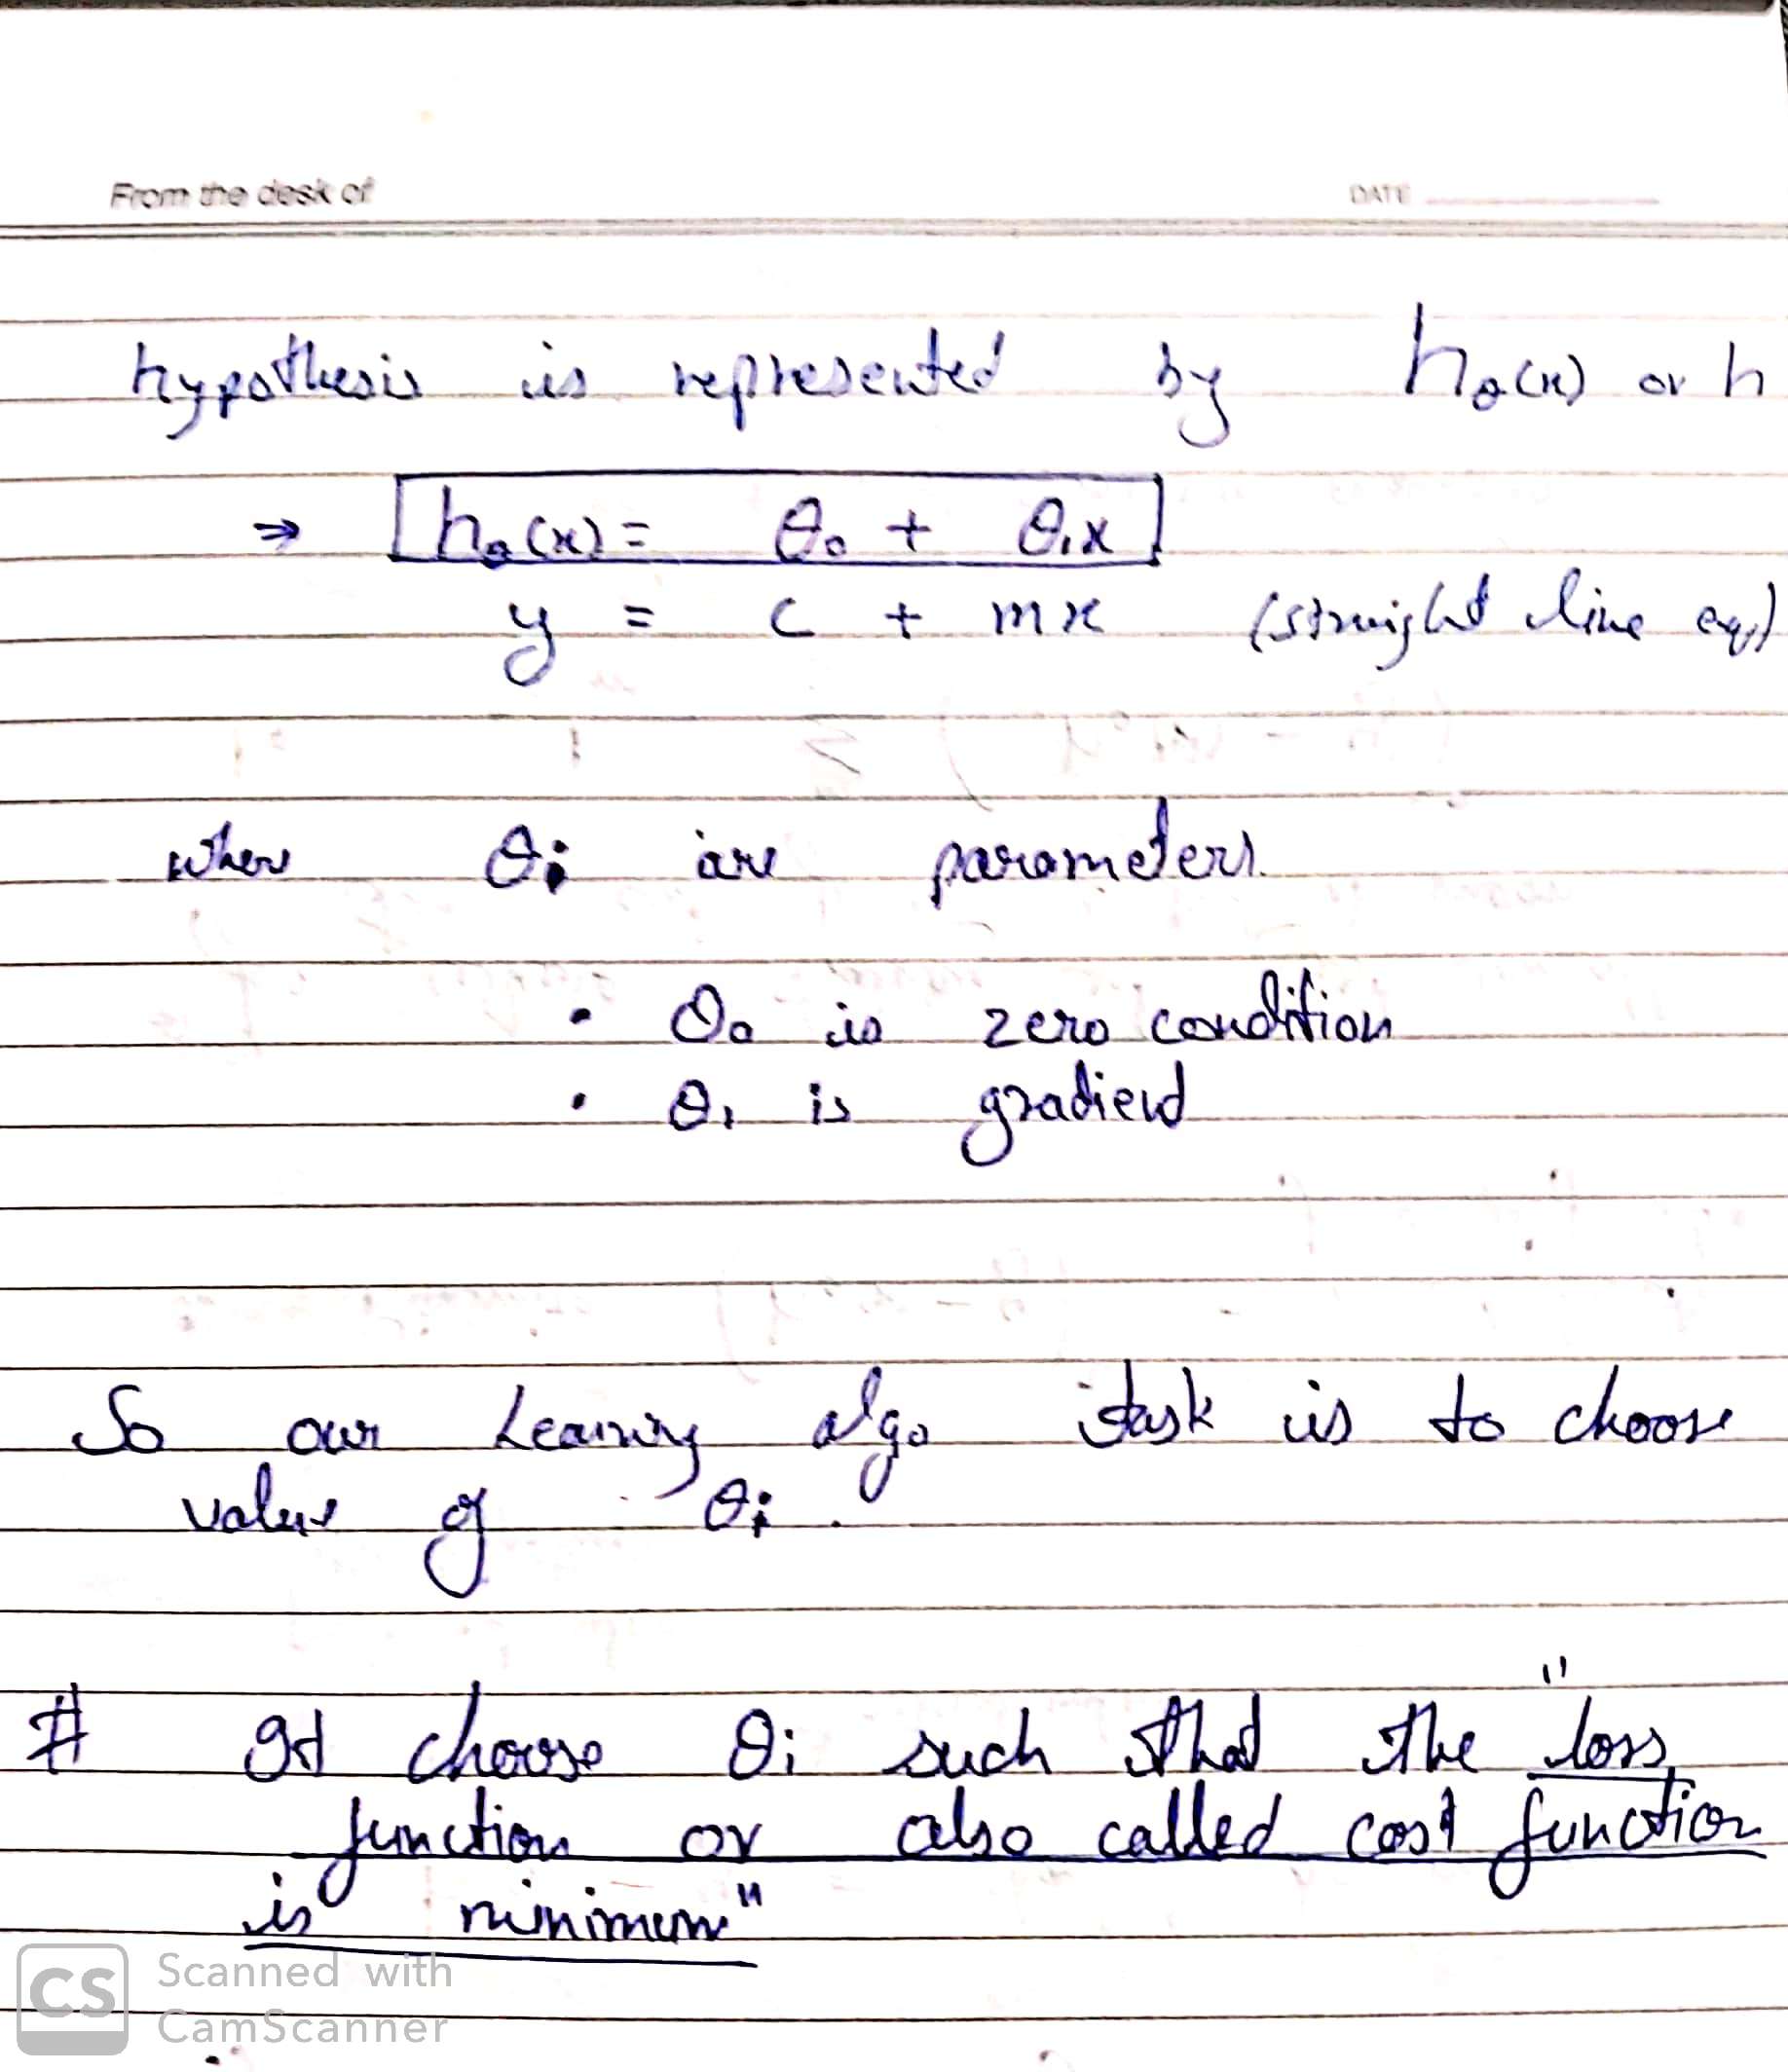 From the desk of
DATE
hypothesis is represented by hθ(x) or h
⇒ hθ(x) = θ₀ + θ₁x
y = c + mx (straight line eqn)
where θi are parameters.
• θ₀ is zero condition
• θ₁ is gradient
So our Learning algo task is to choose
values of θi .
# It choose θi such that the "loss
function or also called cost function
is minimum"
CS Scanned with
CamScanner